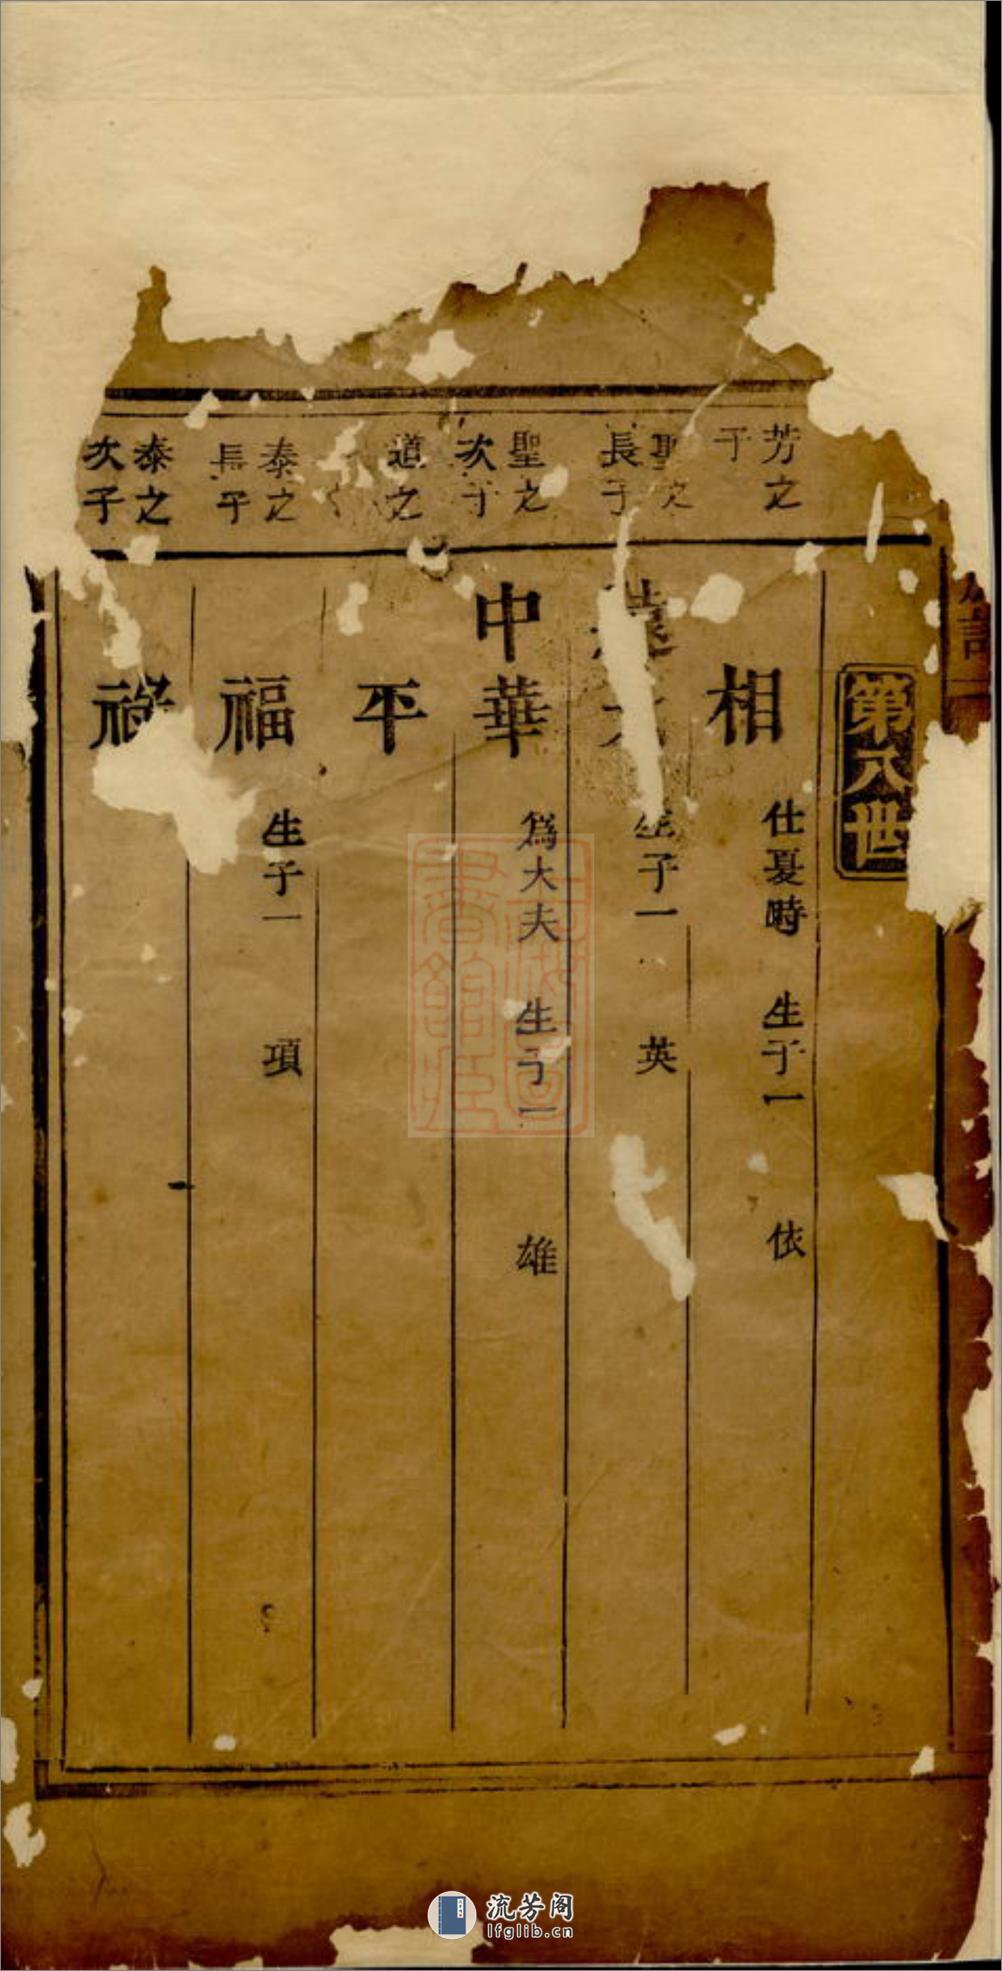 第八世
芳之
子
相
仕夏時 生子一 依
聖之
長子
生子一 英
聖之
次子
中華
爲大夫 生子一 雄
道之
平
泰之
長子
福
生子一 項
泰之
次子
祿
上海圖書館藏
流芳阁
lfglib.cn